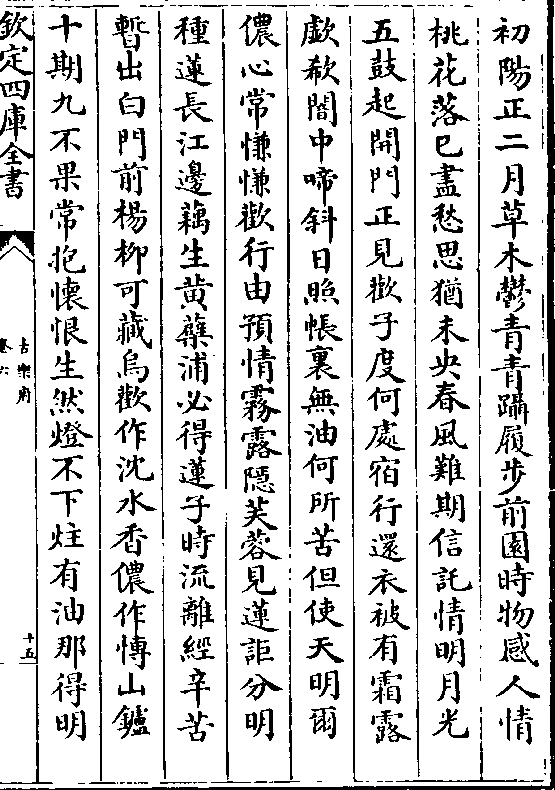 初陽正二月草木鬱青青躡履步前園時物感人情
桃花落已盡愁思猶未央春風難期信託情明月光
五鼓起開門正見歡子度何處宿行還衣被有霜露
歔欷闇中啼斜日照帳裏無油何所苦但使天明爾
儂心常慊慊歡行由預情霧露隱芙蓉見蓮詎分明
種蓮長江邊藕生黄蘗浦必得蓮子時流離經辛苦
暫出白門前楊柳可藏烏歡作沈水香儂作博山鑪
十期九不果常抱懷恨生然燈不下炷有油那得明
欽定四庫全書
古樂府
卷六
十五